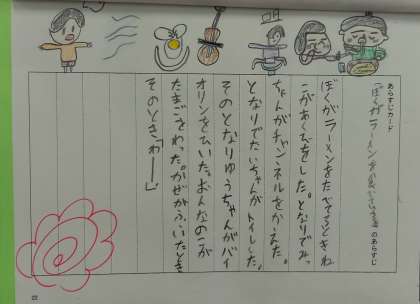 あらすじカード
「ぼくがラーメンをたべてるとき」のあらすじ
ぼくがラーメンをたべてるときね
こがあくびをした。となりでみっ
ちゃんがチャンネルをかえた。
となりでたいちゃんがトイレした。
そのとなりゆうちゃんがバイ
オリンをひいた。おんなのこが
たまごをわった。かぜがふいたとき
そのときさ「わーー」
22